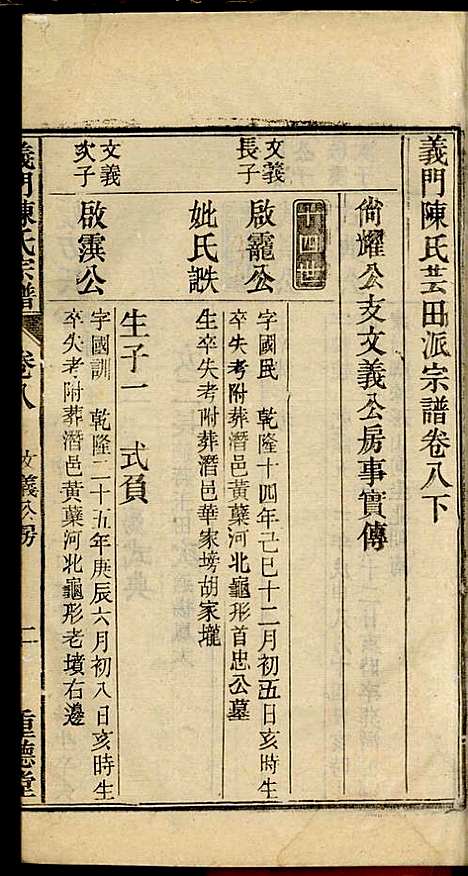 義門陳氏芸田派宗譜卷八下
尙耀公支文義公房事實傳
十四世
文義
長子
啟龗公
字國民 乾隆十四年己巳十二月初五日亥時生
卒失考附葬潛邑黃蘗河北龜形首忠公墓
妣氏詄
生卒失考附葬潛邑華家塝胡家壠
生子一 式負
文義
次子
啟霟公
字國訓 乾隆二十五年庚辰六月初八日亥時生
卒失考附葬潛邑黃蘗河北龜形老墳右邊
義門陳氏宗譜 卷八 文義公房 一 重德堂